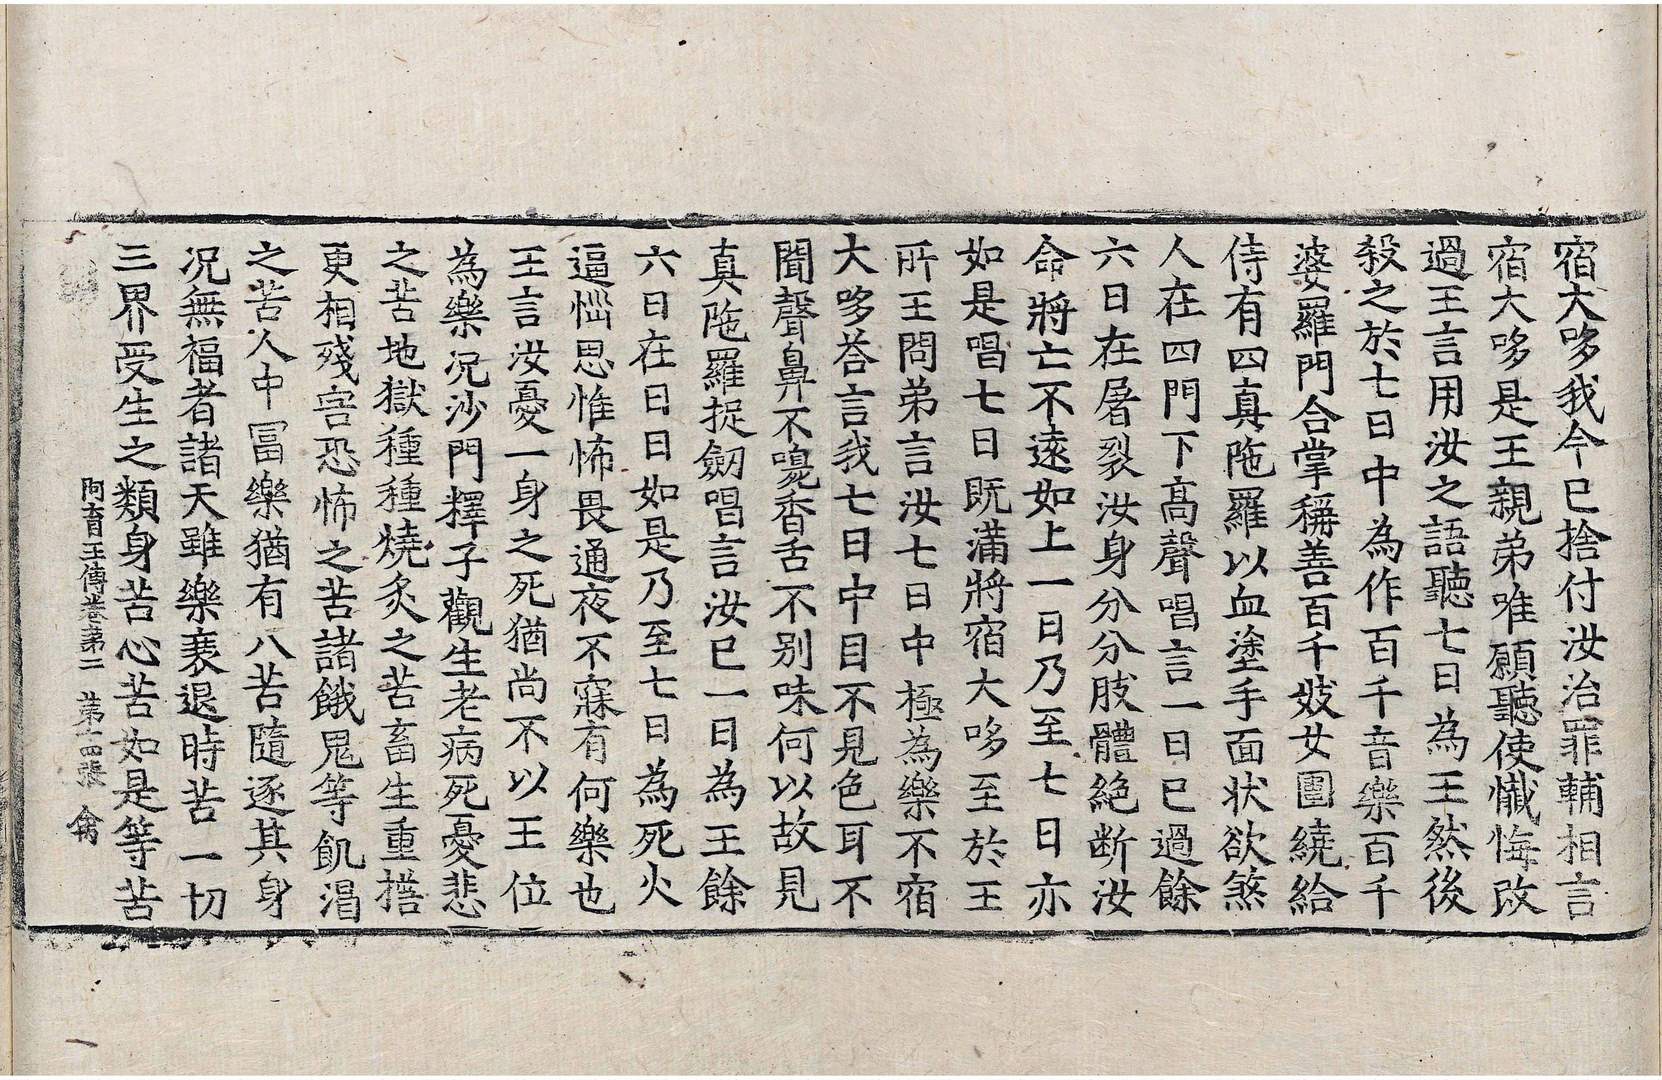 宿大哆我今已捨付汝治罪輔相言
宿大哆是王親弟唯願聽使懺悔改
過王言用汝之語聽七日為王然後
殺之於七日中為作百千音樂百千
婆羅門合掌稱善百千妓女圍繞給
侍有四真陁羅以血塗手面狀欲煞
人在四門下高聲唱言一日已過餘
六日在屠裂汝身分分肢體絶断汝
命將亡不遠如上一日乃至七日亦
如是唱七日既滿將宿大哆至於王
所王問弟言汝七日中極為樂不宿
大哆荅言我七日中目不見色耳不
聞聲鼻不嗅香舌不别味何以故見
真陁羅捉劒唱言汝已一日為王餘
六日在日日如是乃至七日為死火
逼惱思惟怖畏通夜不寐有何樂也
王言汝憂一身之死猶尚不以王位
為樂况沙門釋子觀生老病死憂悲
之苦地獄種種燒炙之苦畜生重擔
更相殘害恐怖之苦諸餓鬼等飢渴
之苦人中冨樂猶有八苦隨逐其身
况無福者諸天雖樂衰退時苦一切
三界受生之類身苦心苦如是等苦
阿育王傳卷第二 第十四張 禽